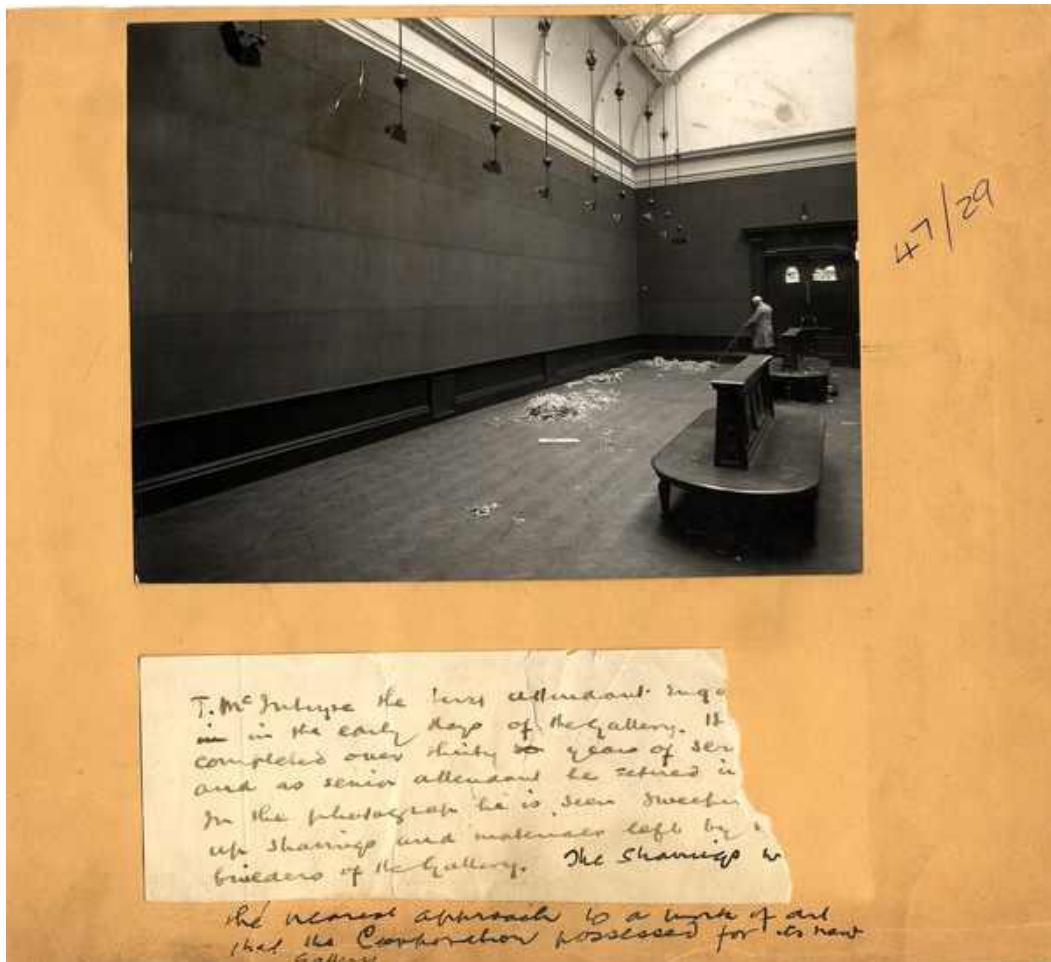 47/29
T. McIntyre the first attendant enga
in in the early days of the Gallery. H
completed over thirty years of ser
and as senior attendant he retired i
In the photograph he is seen sweepin
up shavings and materials left by
builders of the Gallery. The shavings w
the nearest approach to a work of art
that the Corporation possessed for its new
Gallery